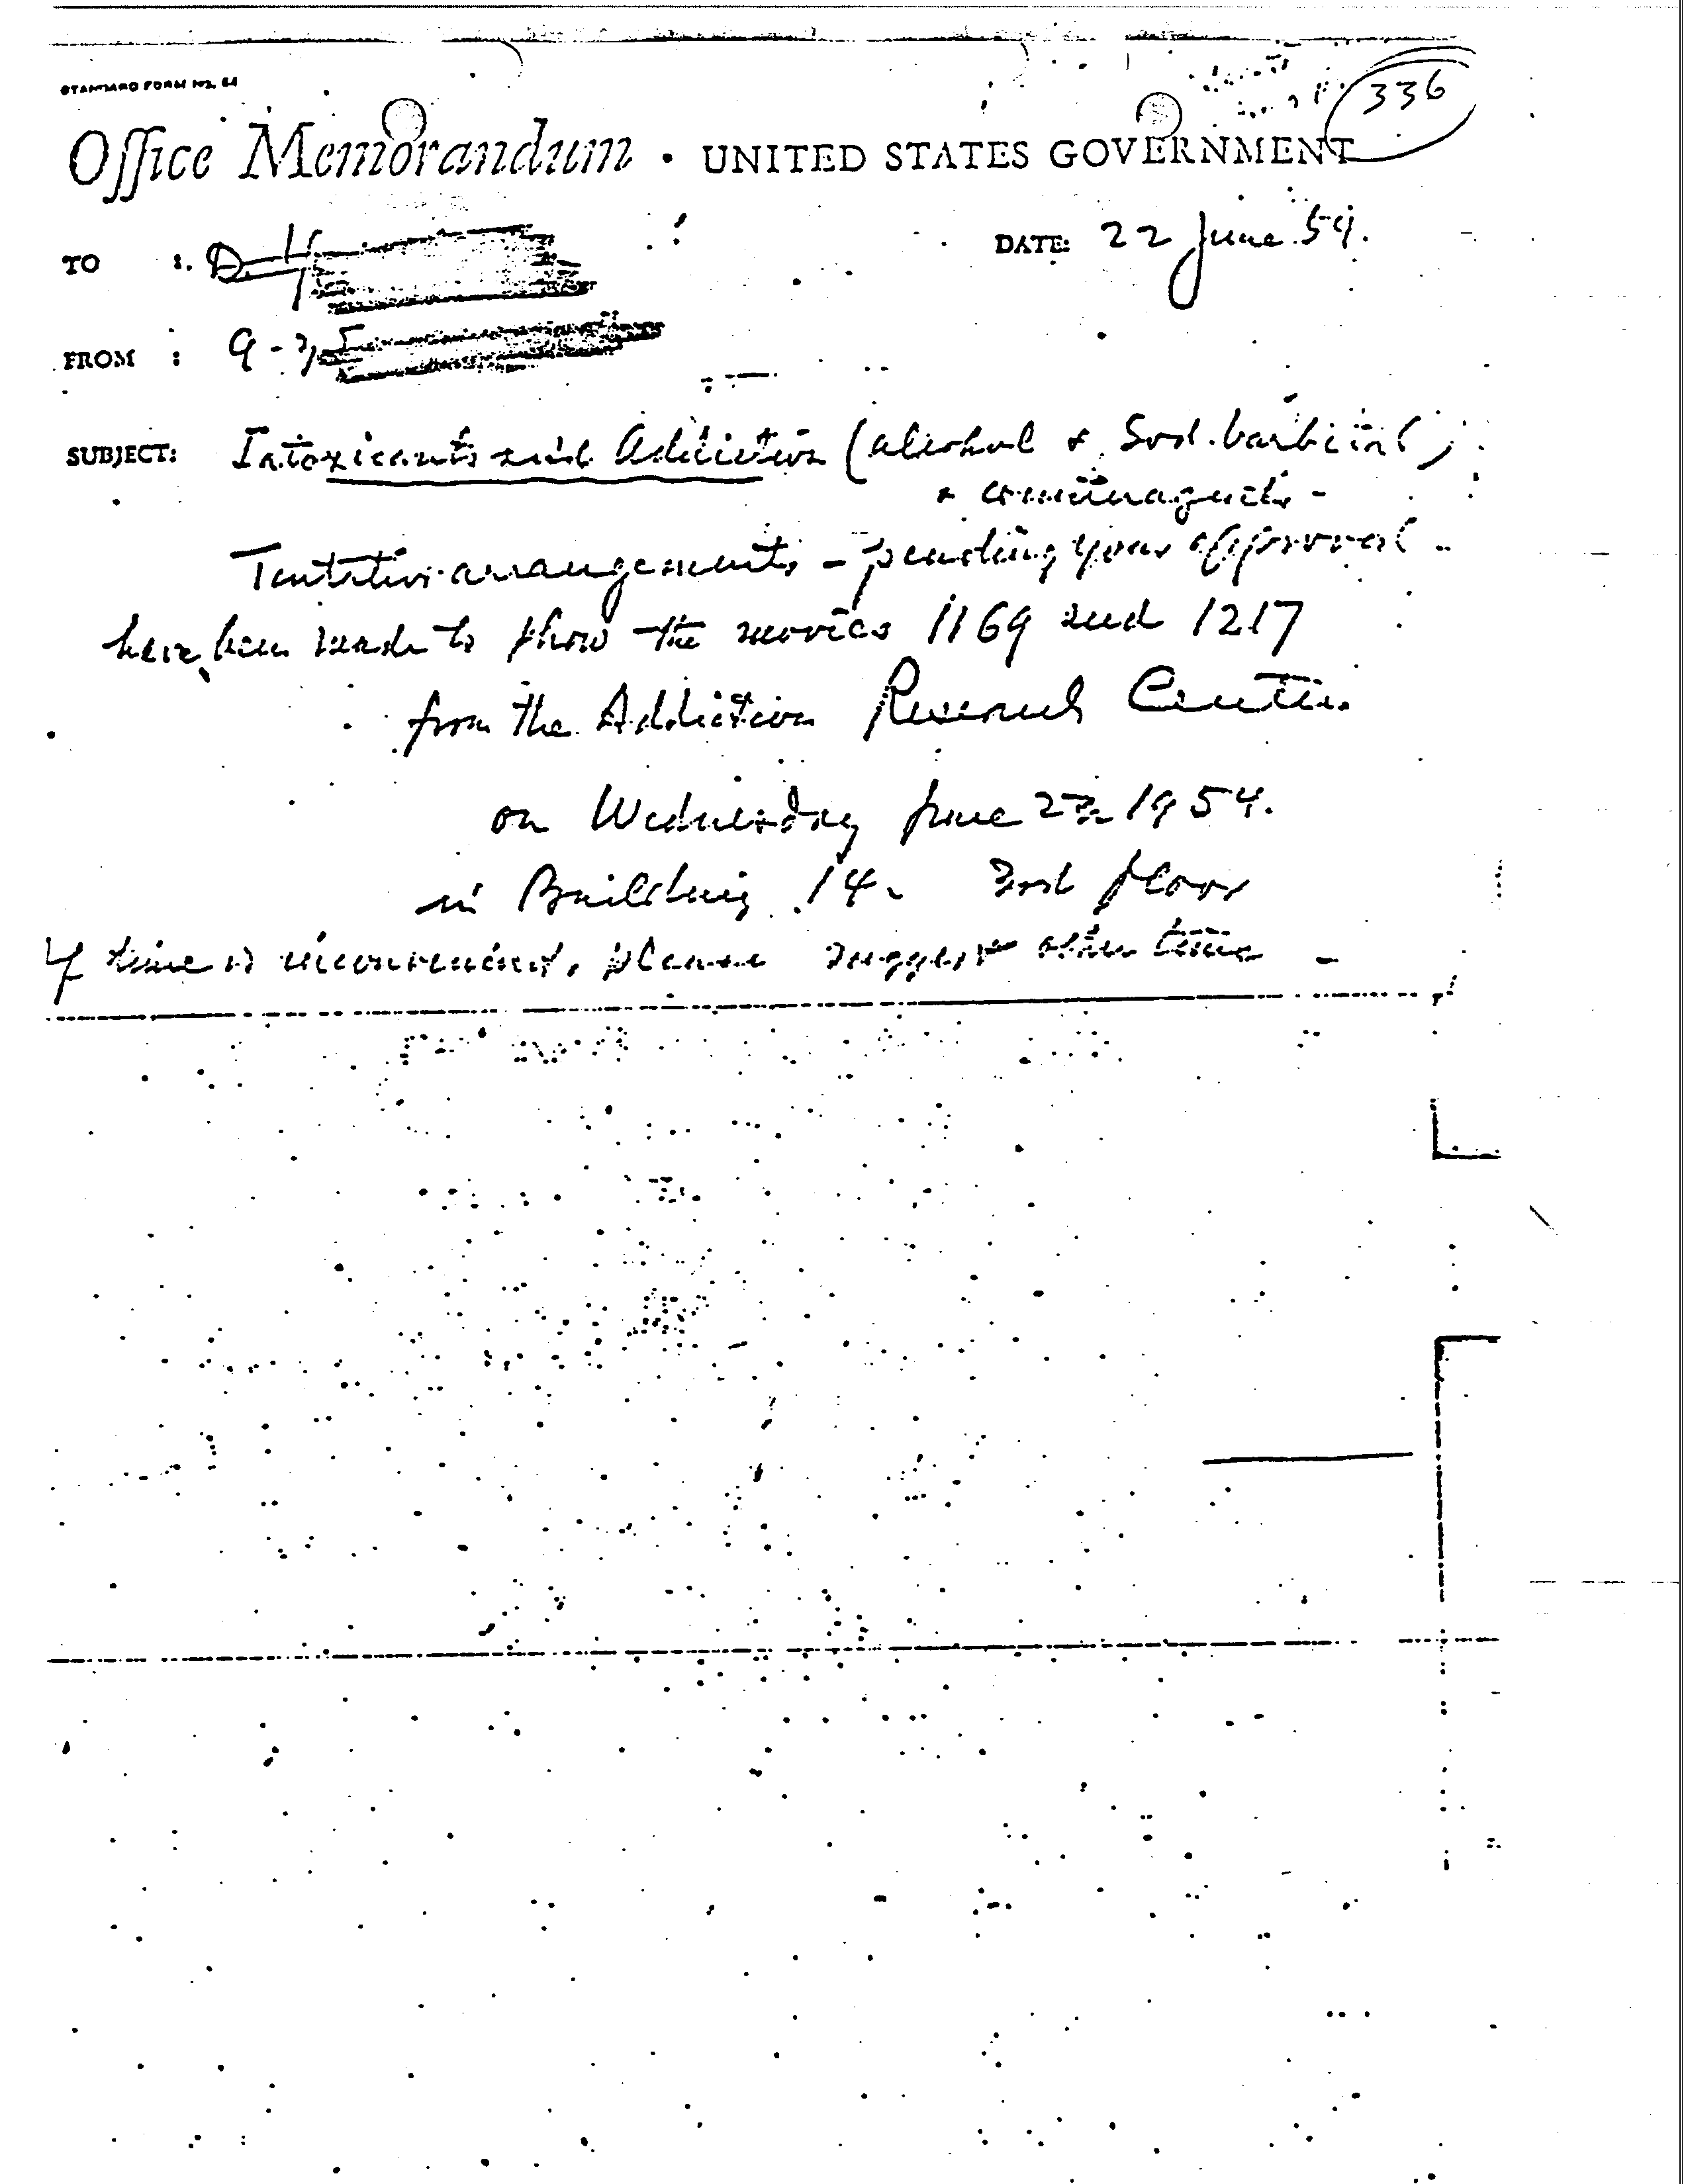 STANDARD FORM NO. 64
336
Office Memorandum • UNITED STATES GOVERNMENT
TO :
DATE: 22 June 54.
FROM :
SUBJECT: Intoxicants and Addiction (alcohol & Sod. barbital)
&
Tentative arrangements - pending your approval -
have been made to show the movies 1169 and 1217
from the Addiction Research Center
on Wednesday June 1954.
in Building 14 - 3rd floor
If time is inconvenient, please suggest other time -